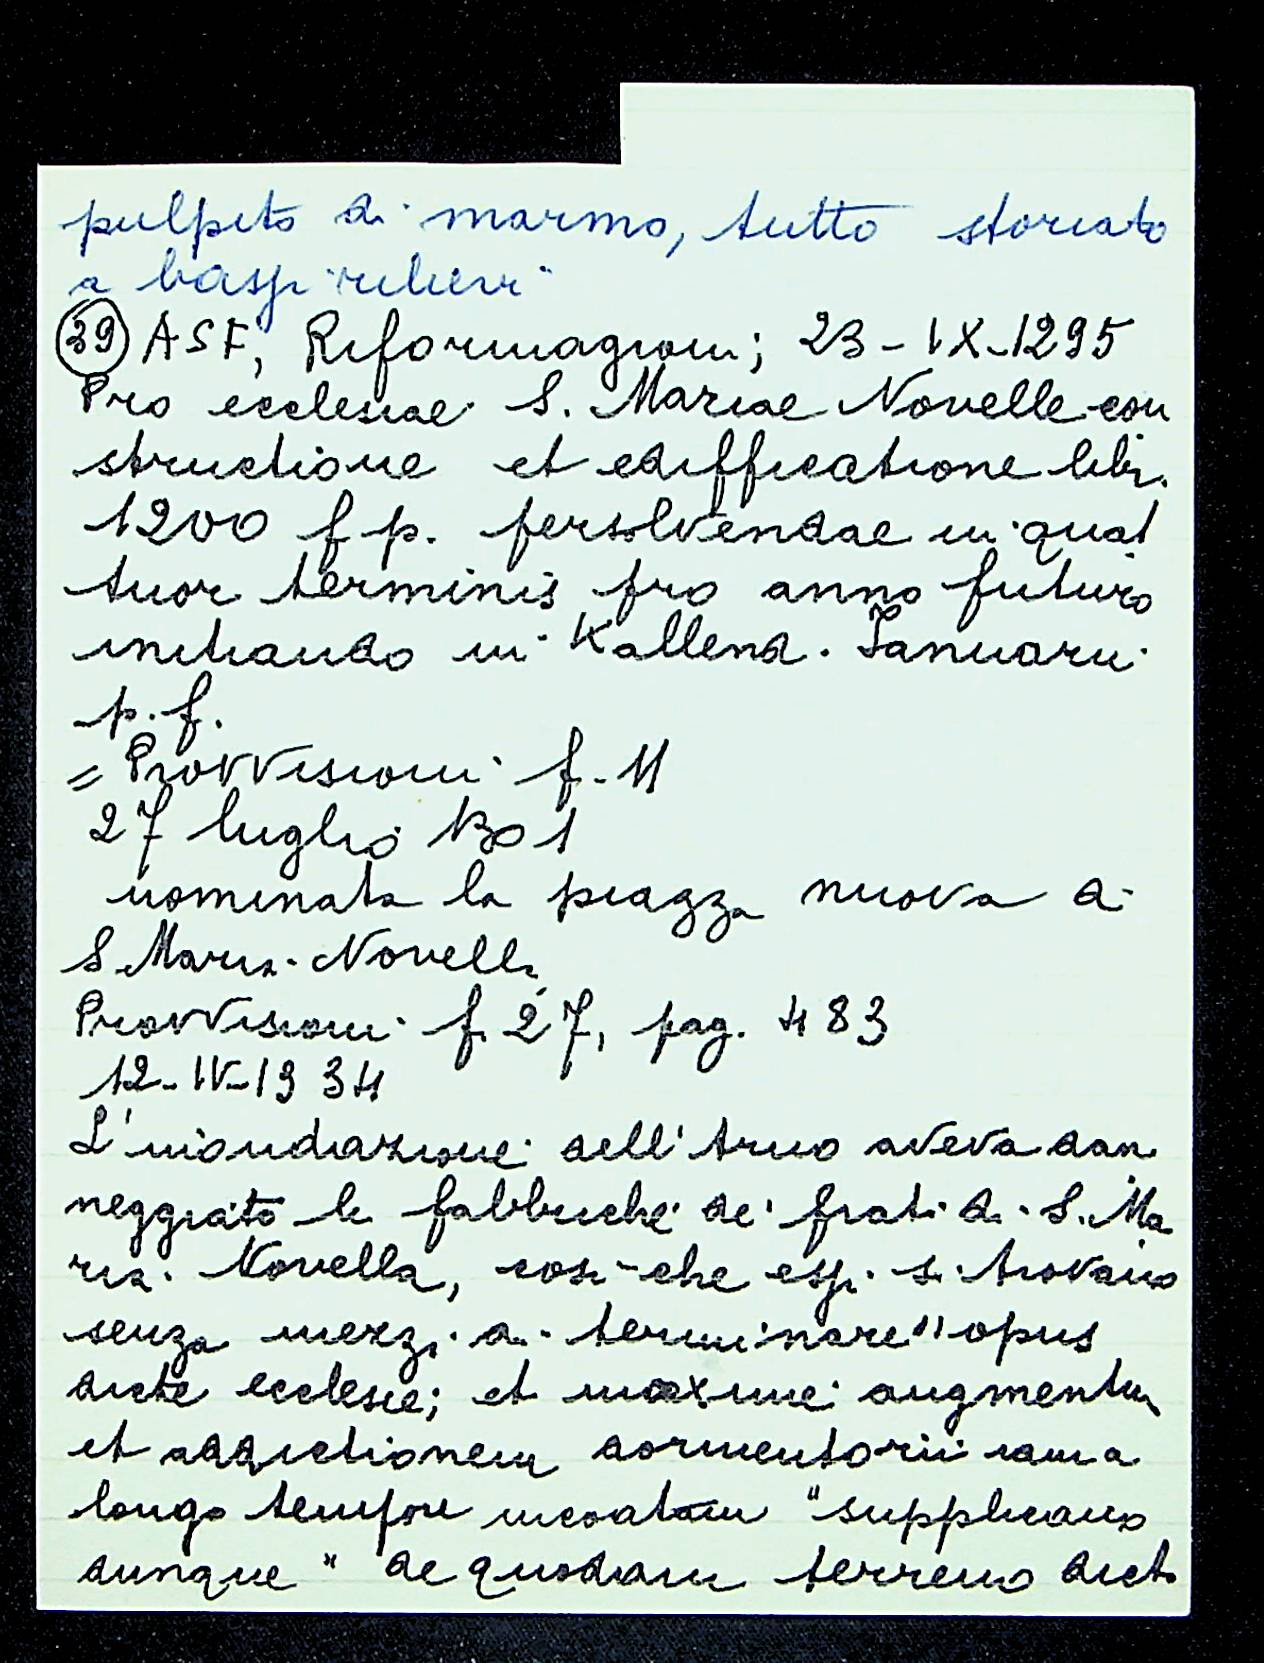 pulpito di marmo, tutto storiato
a bassi rilievi"
39 ASF, Riformagioni; 23-IX-1295
Pro ecclesiae S. Mariae Novelle con
structione et edifficatione libr.
1200 f p. persolvendae in quat
tuor terminis pro anno futuro
initiando in Kallend. Ianuarii
p.f.
= Provvisioni f. 11
27 luglio 1301
nominata la piazza nuova di
S Maria Novella
Provvisioni f. 27, pag. 483
12-IV-1334
L'inondazione dell'Arno aveva dan
neggiato le fabbriche de' frati di S. Ma
ria Novella, così che essi si trovano
senza mezzi di terminare "opus
dicte ecclesie; et maxime augmentum
et addictionem dormentorii iam a
longo tempore incoatam" supplicano
dunque "de quodam terreno dicto